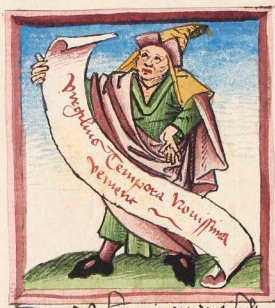 virgilius Tempora Novissima
venient